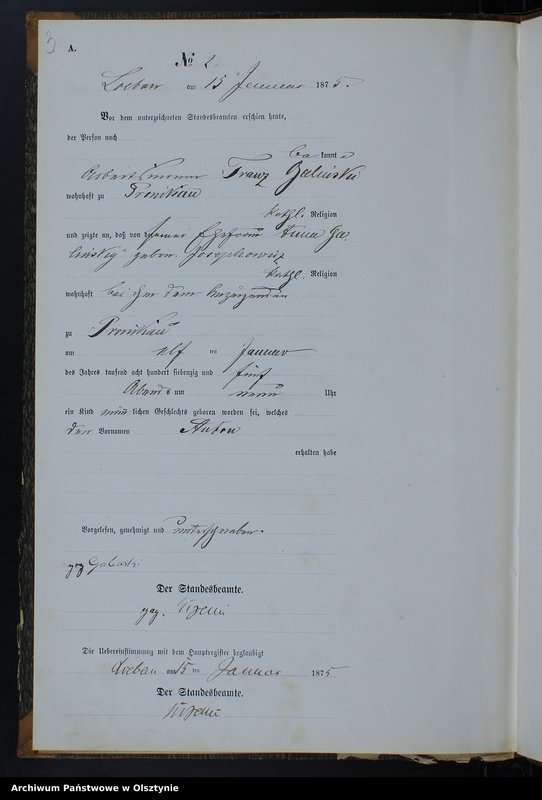 3
A.
No 2
Loebau am 15 Januar 1875.
Vor dem unterzeichneten Standesbeamten erschien heute,
der Person nach
bekannt
Arbeitsmann Franz Galinski
wohnhaft zu Pronikau
kathl. Religion
und zeigte an, daß von seiner Ehefrau Anna Ga
linsky geborn. Josephowicz
kathl. Religion
wohnhaft bei ihm dem Anzeigenden
zu Pronikau
am elf ten Januar
des Jahres tausend acht hundert siebenzig und fünf
Abends um neun Uhr
ein Kind männlichen Geschlechts geboren worden sei, welches
den Vornamen Anton
erhalten habe
Vorgelesen, genehmigt und unterschrieben.
gez Galinski
Der Standesbeamte.
gez.
Die Uebereinstimmung mit dem Hauptregister beglaubigt
Loebau am 15 ten Januar 1875
Der Standesbeamte.
Archiwum Państwowe w Olsztynie